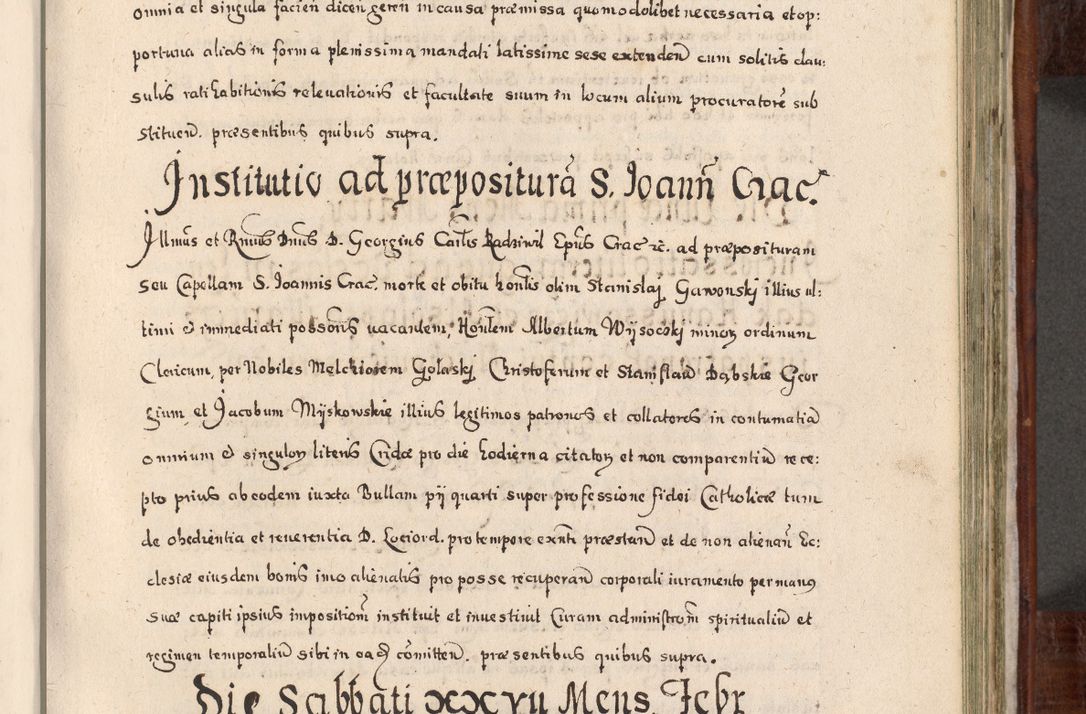 omnia et singula facień diceń gereń in causa præmissa quomodolibet necessaria et op:
portuna alias in forma plenissima mandati latissime sese extendeń cum solitis clau:
sulis ratihabitionis releuationis et facultate suum in locum alium procuratorē sub
stituen̄. præsentibus quibus supra.
Institutio ad præposituram̄ S. Joann̄ Crac.
Jllm̄us et Rm̄us Dn̄us D. Georgius Carlis Radziwil Ep̄us Crac etc. ad præposituram
seu Capellam S. Joannis Crac. morte et obitu hon̄tis olim Stanislaj Gawonskj illius ul:
timi et immediati possoris uacantem, Hon̄tem Albertum Wÿsockj minor ordinum
Clericum, per Nobiles Melchiorem Golaskj Christoferum et Stanislaū Dąbskie Geor
gium et Jacobum Mÿskowskie illius legitimos patronos et collatores in contumatia
omnium et singulor literis Cridæ pro die hodierna citator et non comparentiū rece:
pto prius ab eodem iuxta Bullam pÿ quarti super professione fidei Catholicæ tum
de obedientia et reuerentia D. Lociord. pro tempore exn̄ti præstan̄ et de non alienan̄ Ec:
clesiæ eiusdem bonis imo alienatis pro posse recuperan̄ corporali iuramento per manus
suæ capiti ipsius impositiom̄ instituit et inuestiuit Curam administrom̄ spiritualiū et
regimen temporaliū sibi in ea comitten̄. præsentibus quibus supra.
Die Sabbati xxvii Mens. Febr